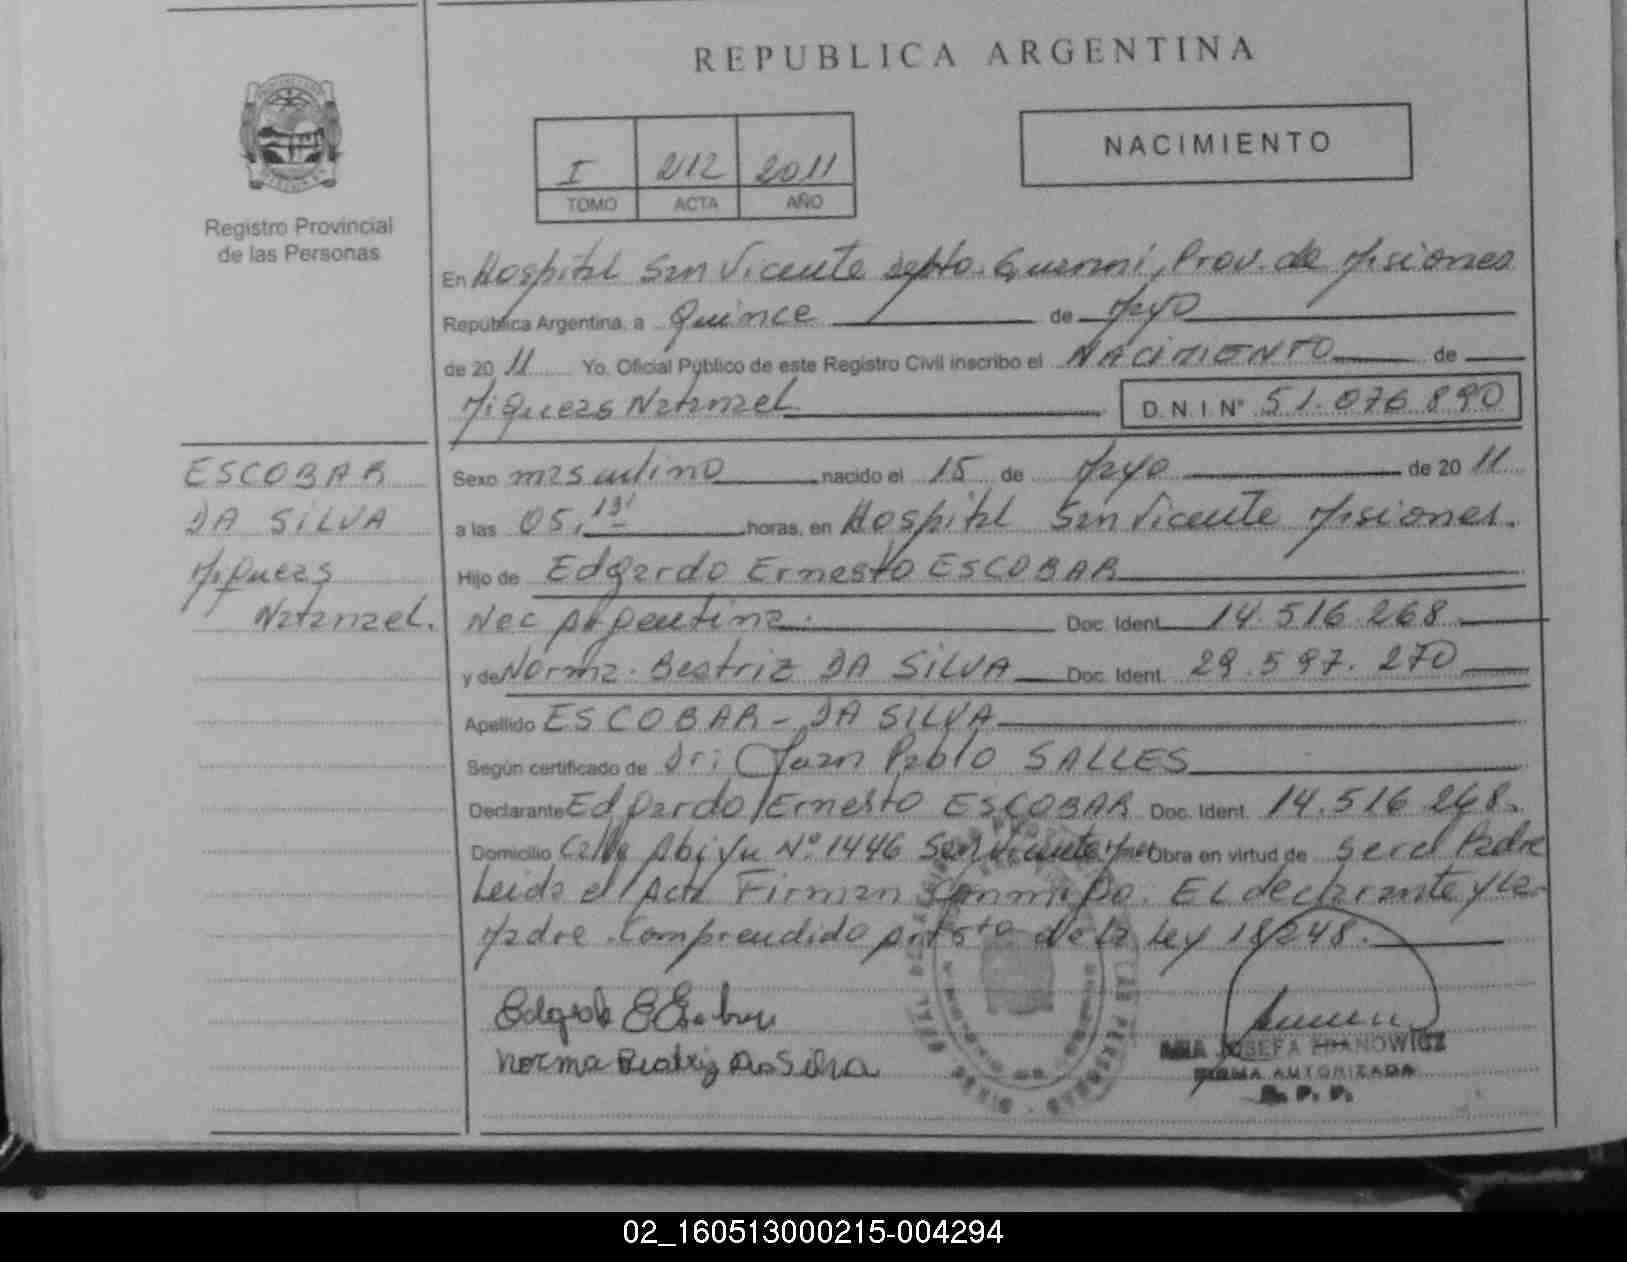 REPUBLICA ARGENTINA
I 212 2011
TOMO ACTA AÑO
NACIMIENTO
Registro Provincial
de las Personas
En Hospital San Vicente Depto. Guarani, Prov. de Misiones
República Argentina, a Quince de Mayo
de 2011 Yo. Oficial Público de este Registro Civil inscribo el NACIMIENTO de
Miqueas Natanael D. N. I. N° 51.076.890
ESCOBAR
DA SILVA
Miqueas
Natanael.
Sexo masculino nacido el 15 de Mayo de 2011
a las 05, horas, en Hospital San Vicente Misiones.
Hijo de Edgardo Ernesto ESCOBAR
Nac Argentina. Doc. Ident. 14.516.268
y de Norma. Beatriz DA SILVA Doc. Ident. 29.597.270
Apellido ESCOBAR - DA SILVA
Según certificado de Dr: Juan Pablo SALLES
Declarante Edgardo Ernesto ESCOBAR Doc. Ident. 14.516.268.
Domicilio Calle N° 1446 San Vicente Obra en virtud de ser el Padre
Leida el Acta Firman Conmigo. El declarante y la
Madre. Comprendido de la Ley 18248.
Norma Beatriz Da Silva
JOSEFA
FIRMA AUTORIZADA
R. P. P.
02_160513000215-004294